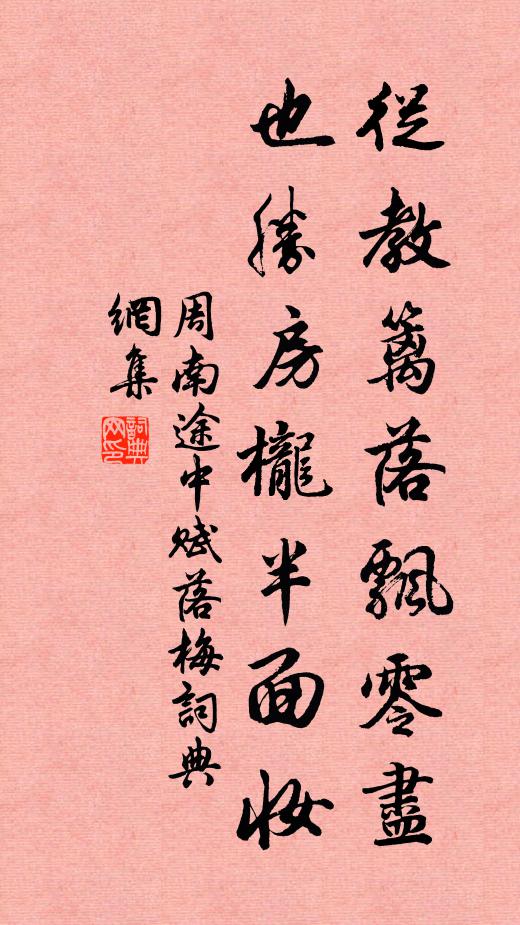 從教籬落飄零盡
也勝房櫳半面妝
周南途中賦落梅詞典
網集
詞典
网印